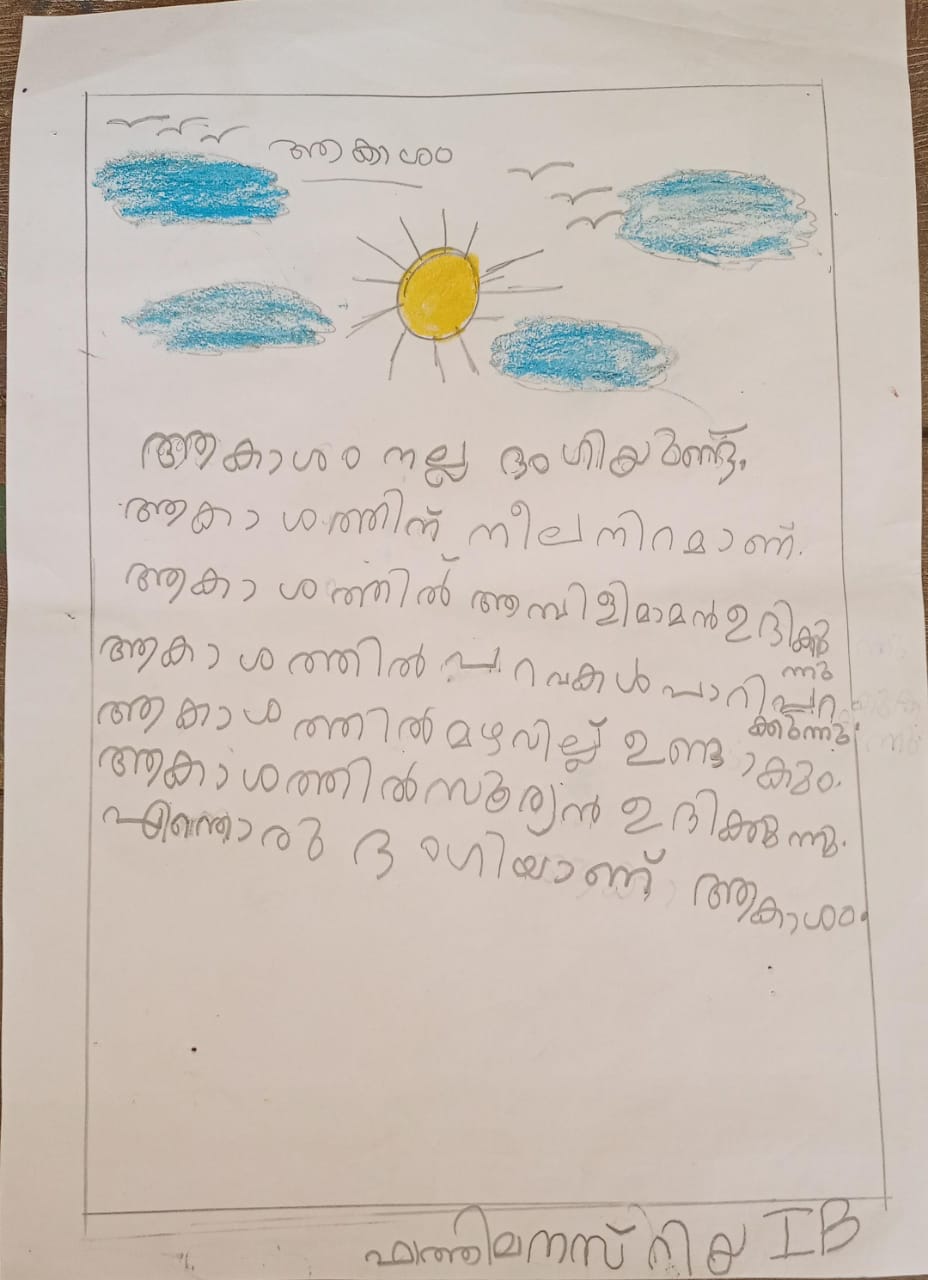 ആകാശം
ആകാശം നല്ല ഭംഗിയുണ്ട്.
ആകാശത്തിന് നീലനിറമാണ്.
ആകാശത്തിൽ അമ്പിളിമാമൻ ഉദിക്കു
ന്നു
ആകാശത്തിൽ പറവകൾ പാറിപ്പറ
ക്കുന്നു.
ആകാശത്തിൽ മഴവില്ല് ഉണ്ടാകും.
ആകാശത്തിൽ സൂര്യൻ ഉദിക്കുന്നു.
എന്തൊരു ഭംഗിയാണ് ആകാശം.
ഫാത്തിമ നസ്റിയ IB